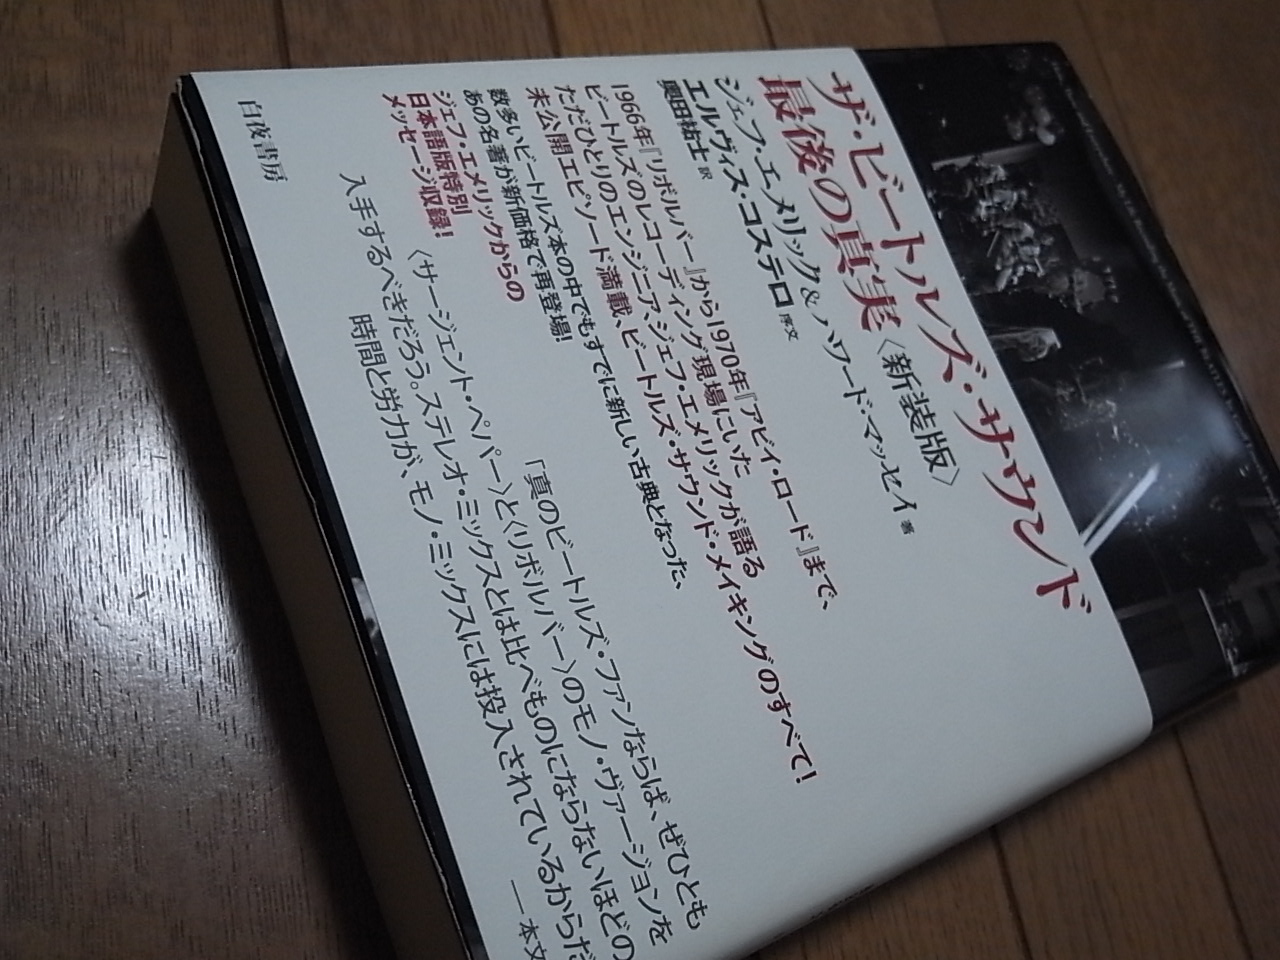 ザ・ビートルズ・サウンド
最後の真実〈新装版〉
ジェフ・エメリック&ハワード・マッセイ 著
エルヴィス・コステロ 序文
奥田祐士 訳
1966年『リボルバー』から1970年『アビイ・ロード』まで、
ビートルズのレコーディング現場にいた
ただひとりのエンジニア、ジェフ・エメリックが語る
未公開エピソード満載、ビートルズ・サウンド・メイキングのすべて!
数多いビートルズ本の中でもすでに新しい古典となった、
あの名著が新価格で再登場!
ジェフ・エメリックからの
日本語版特別
メッセージ収録!
「真のビートルズ・ファンならば、ぜひとも
〈サージェント・ペパー〉と〈リボルバー〉のモノ・ヴァージョンを
入手するべきだろう。ステレオ・ミックスとは比べものにならないほどの
時間と労力が、モノ・ミックスには投入されているからだ
——本文
白夜書房